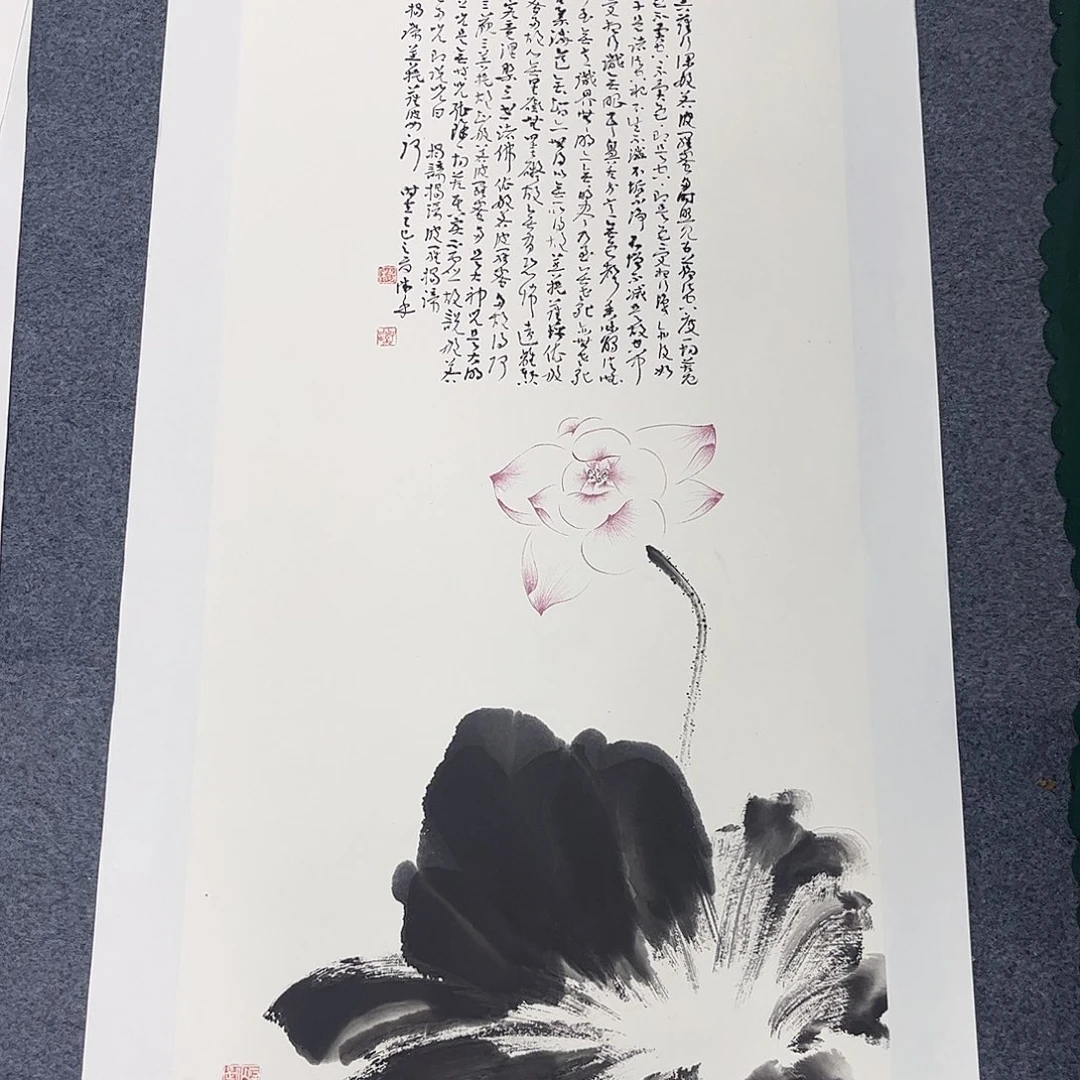 薩行深般若波羅蜜多時照見五蘊皆空度一切苦厄
色不異空空不異色色即是空空即是色受想行識亦復如
子是諸法空相不生不滅不垢不淨不增不減是故空中
受想行識無眼耳鼻舌身意無色聲香味觸法無
至無意識界無無明亦無無明盡乃至無老死亦無老死
苦集滅道無智亦無得以無所得故菩提薩埵依般
蜜多故心無罣礙無罣礙故無有恐怖遠離顛
究竟涅槃三世諸佛依般若波羅蜜多故得阿
三藐三菩提故知般若波羅蜜多是大神咒是大明
上咒是無等等咒能除一切苦真實不虛故說般若
多咒即說咒曰 揭諦揭諦波羅揭諦
揭諦菩提薩婆訶